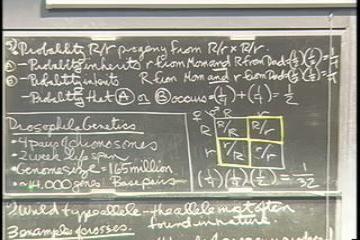 3) Probability R/r progeny from R/r x R/r.
A - Probability inherits r from Mom and R from Dad = (1/2)(1/2) = 1/4
B - Probability inherit R from Mom and r from Dad = (1/2)(1/2) = 1/4
- Probability that A or B occurs = (1/4) + (1/4) = 1/2
Drosophila Genetics
• 4 pairs of chromosomes
• 2 week life span
• Genome size = 165 million
Base pairs
• ~14,000 genes
♀ ♂ R r
R R/R R/r
r r/R r/r
(1/4)(1/4)(1/2) = 1/32
1) Wild type allele - the allele most often
found in nature
3 example crosses.